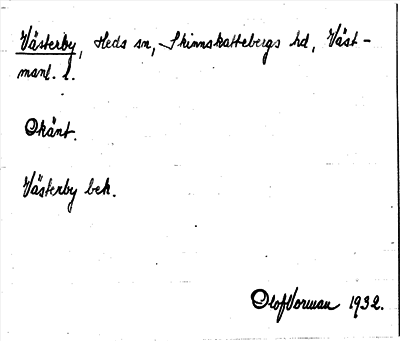 Västerby, Heds sn, Skinnskattebergs hd, Väst-
manl. l.
Okänt.
Västerby bek.
Olof Vorman 1932.